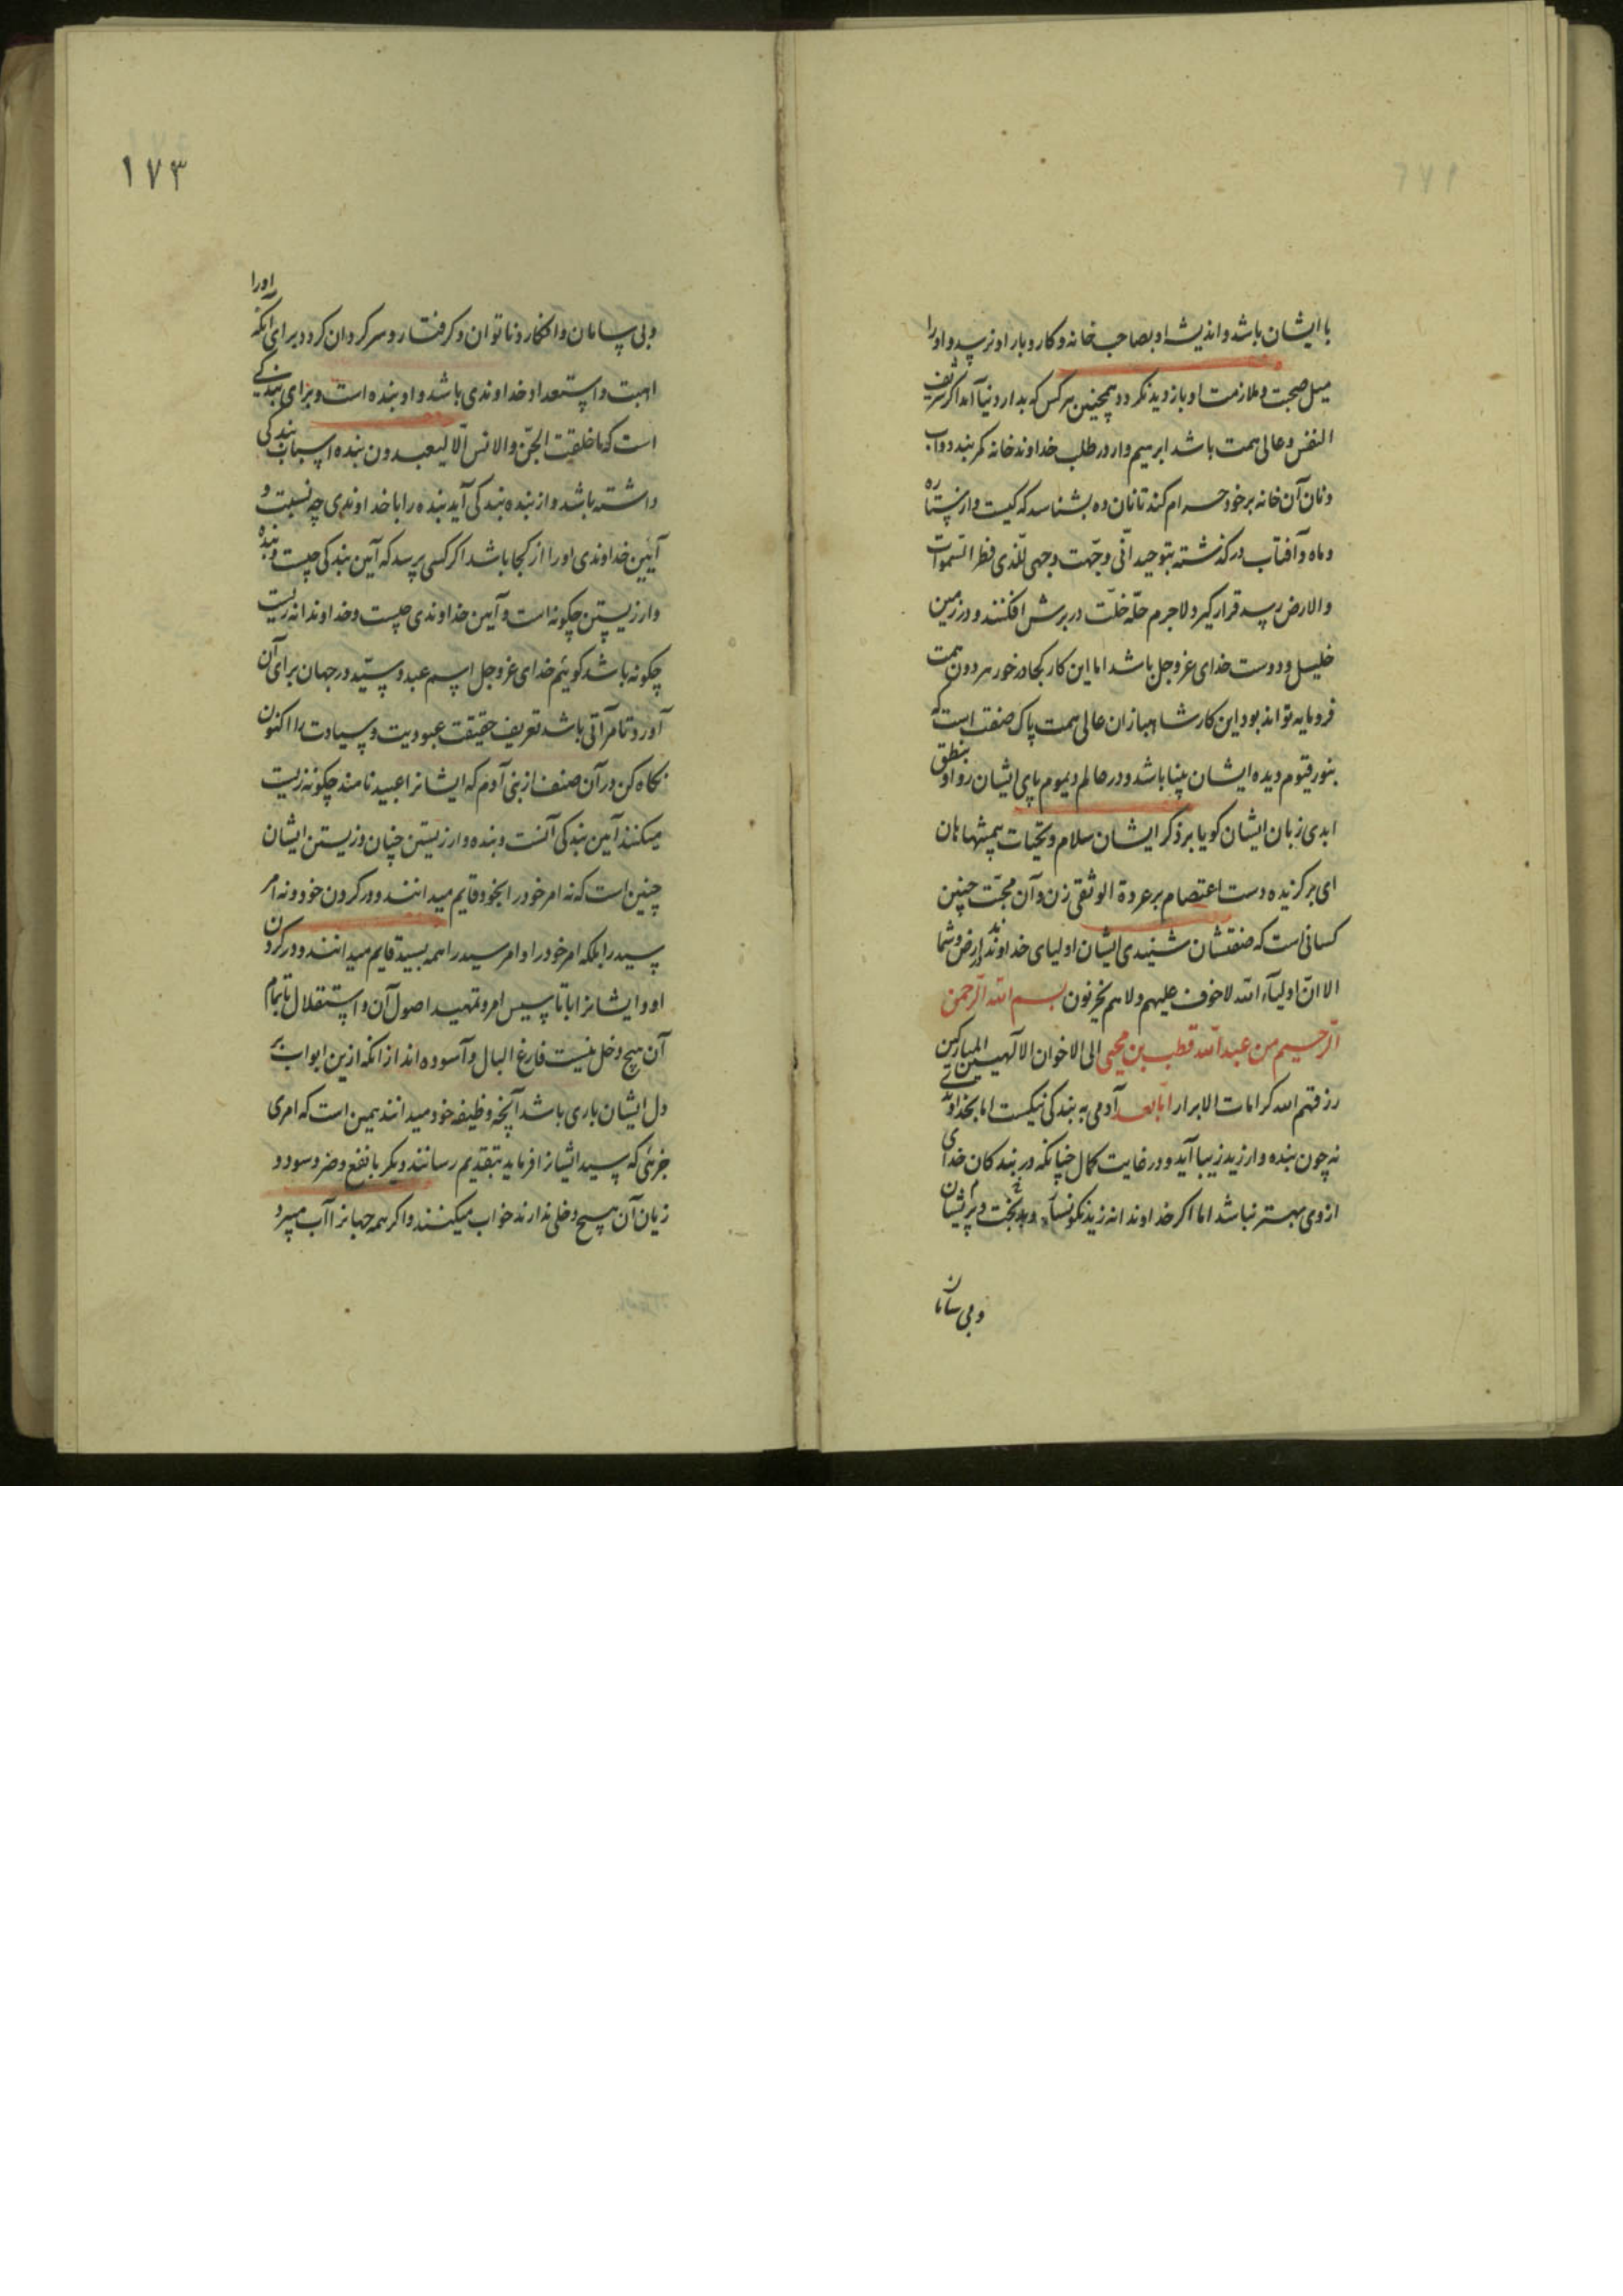 با ایشان باشد و اندیشه او بصاحب خانه و کار و بار او نرسد و او را
میل صحبت و ملازمت او بازدید نکردد و همچنین هر کس که بدار دنیا آمد اکر شریف
النفس و عالی همت باشد ابرهیم وار در طلب خداوند خانه کمر بندد و آب
و نان آن خانه بر خود حرام کند تا نان ده بشناسد که کیست و از ستاره
و ماه و آفتاب در کذشته بتوحید انّی وجّهت وجهی للّذی فطر السّموات
والارض رسد قرار کیرد لاجرم حلّه خلّت در برش افکنند و در زمین
خلیل و دوست خدای عزوجل باشد اما این کار کجا در خور هر دون همت
فرومایه تواند بود این کار شاهبازان عالی همت پاک صفتست که
بنور قیّوم دیده ایشان بینا باشد و در عالم دیموم پای ایشان روا و بنطق
ابدی زبان ایشان کویا بر ذکر ایشان سلام و تحیّات همیشها هان
ای برکزیده دست اعتصام بر عروة الوثقی زن و آن محبّت چنین
کسانی است که صفتشان شنیدی ایشان اولیای خداوند ارض و سما اند
الا انّ اولیآء الله لا خوف علیهم و لا هم یحزنون بسم الله الرّحمن
الرّحیم من عبد الله قطب بن محیی الی الاخوان الالهیین المبارکین
رزقهم الله کرامات الابرار امّا بعد آدمی به بندکی نیکست اما بخداوندی
نه چون بنده وار زید زیبا آید و در غایت کمال چنانکه در بندکان خدای
از وی بهتر نباشد اما اکر خداوندانه زید نکونسار و بدبخت و پریشان
و بی سامان
۱۷۳
و بی سامان و افکار و ناتوان و کرفتار و سرکردان کردد برای آنکه او را
اهبت و استعداد خداوندی باشد و او بنده است و برای بندکی
است که ما خلقت الجنّ والانس الّا لیعبدون بنده اسباب بندکی
داشته باشد و از بنده بندکی آید بنده را با خداوندی چه نسبت و
آیین خداوندی او را از کجا باشد اکر کسی پرسد که آیین بندکی چیست و بنده
وار زیستن چکونه است و آیین خداوندی چیست و خداوندانه زیست
چکونه باشد کوییم خدای عزوجل اسم عبد و سیّد در جهان برای آن
آورد تا مرآتی باشد تعریف حقیقت عبودیت و سیادت را اکنون
نکاه کن در آن صنف از بنی آدم که ایشانرا عبید نامند چکونه زیست
میکنند آیین بندکی آنست و بنده وار زیستن چنان و زیستن ایشان
چنین است که نه امر خود را بخود قایم میدانند و در کردن خود و نه امر
سید را بلکه امر خود را و امر سید را همه بسید قایم میدانند و در کردن
او و ایشانرا با تاسیس امر و تمهید اصول آن و استقلال باتمام
آن هیچ دخل نیست فارغ البال و آسوده اند از انکه ازین ابواب بر
دل ایشان باری باشد آنچه وظیفه خود میدانند همین است که امری
جزئی که سید ایشانرا فرماید بتقدیم رسانند دیکر با نفع و ضر و سود و
زیان آن هیچ دخلی ندارند خواب میکنند و اکر همه جهانرا آب میبرد